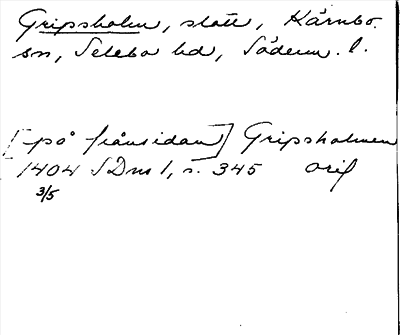 Gripsholm, slott, Kärnbo
sn, Selebo hd, Söderm. l.
[på frånsidan] Gripsholmen
1404 SDns 1, s. 345 orig
3/5